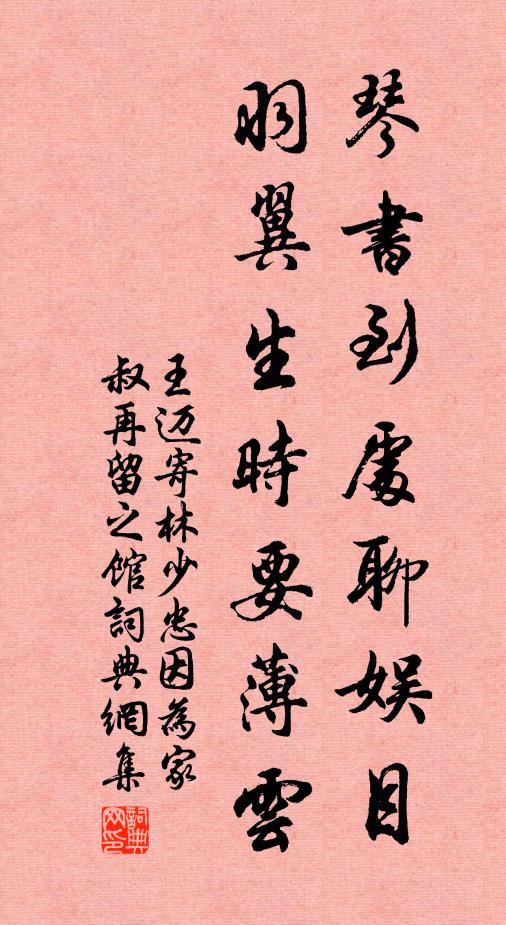 琴書到處聊娛目
羽翼生時要薄雲
王迈寄林少忠因為家
叔再留之館詞典網集
詞典网印